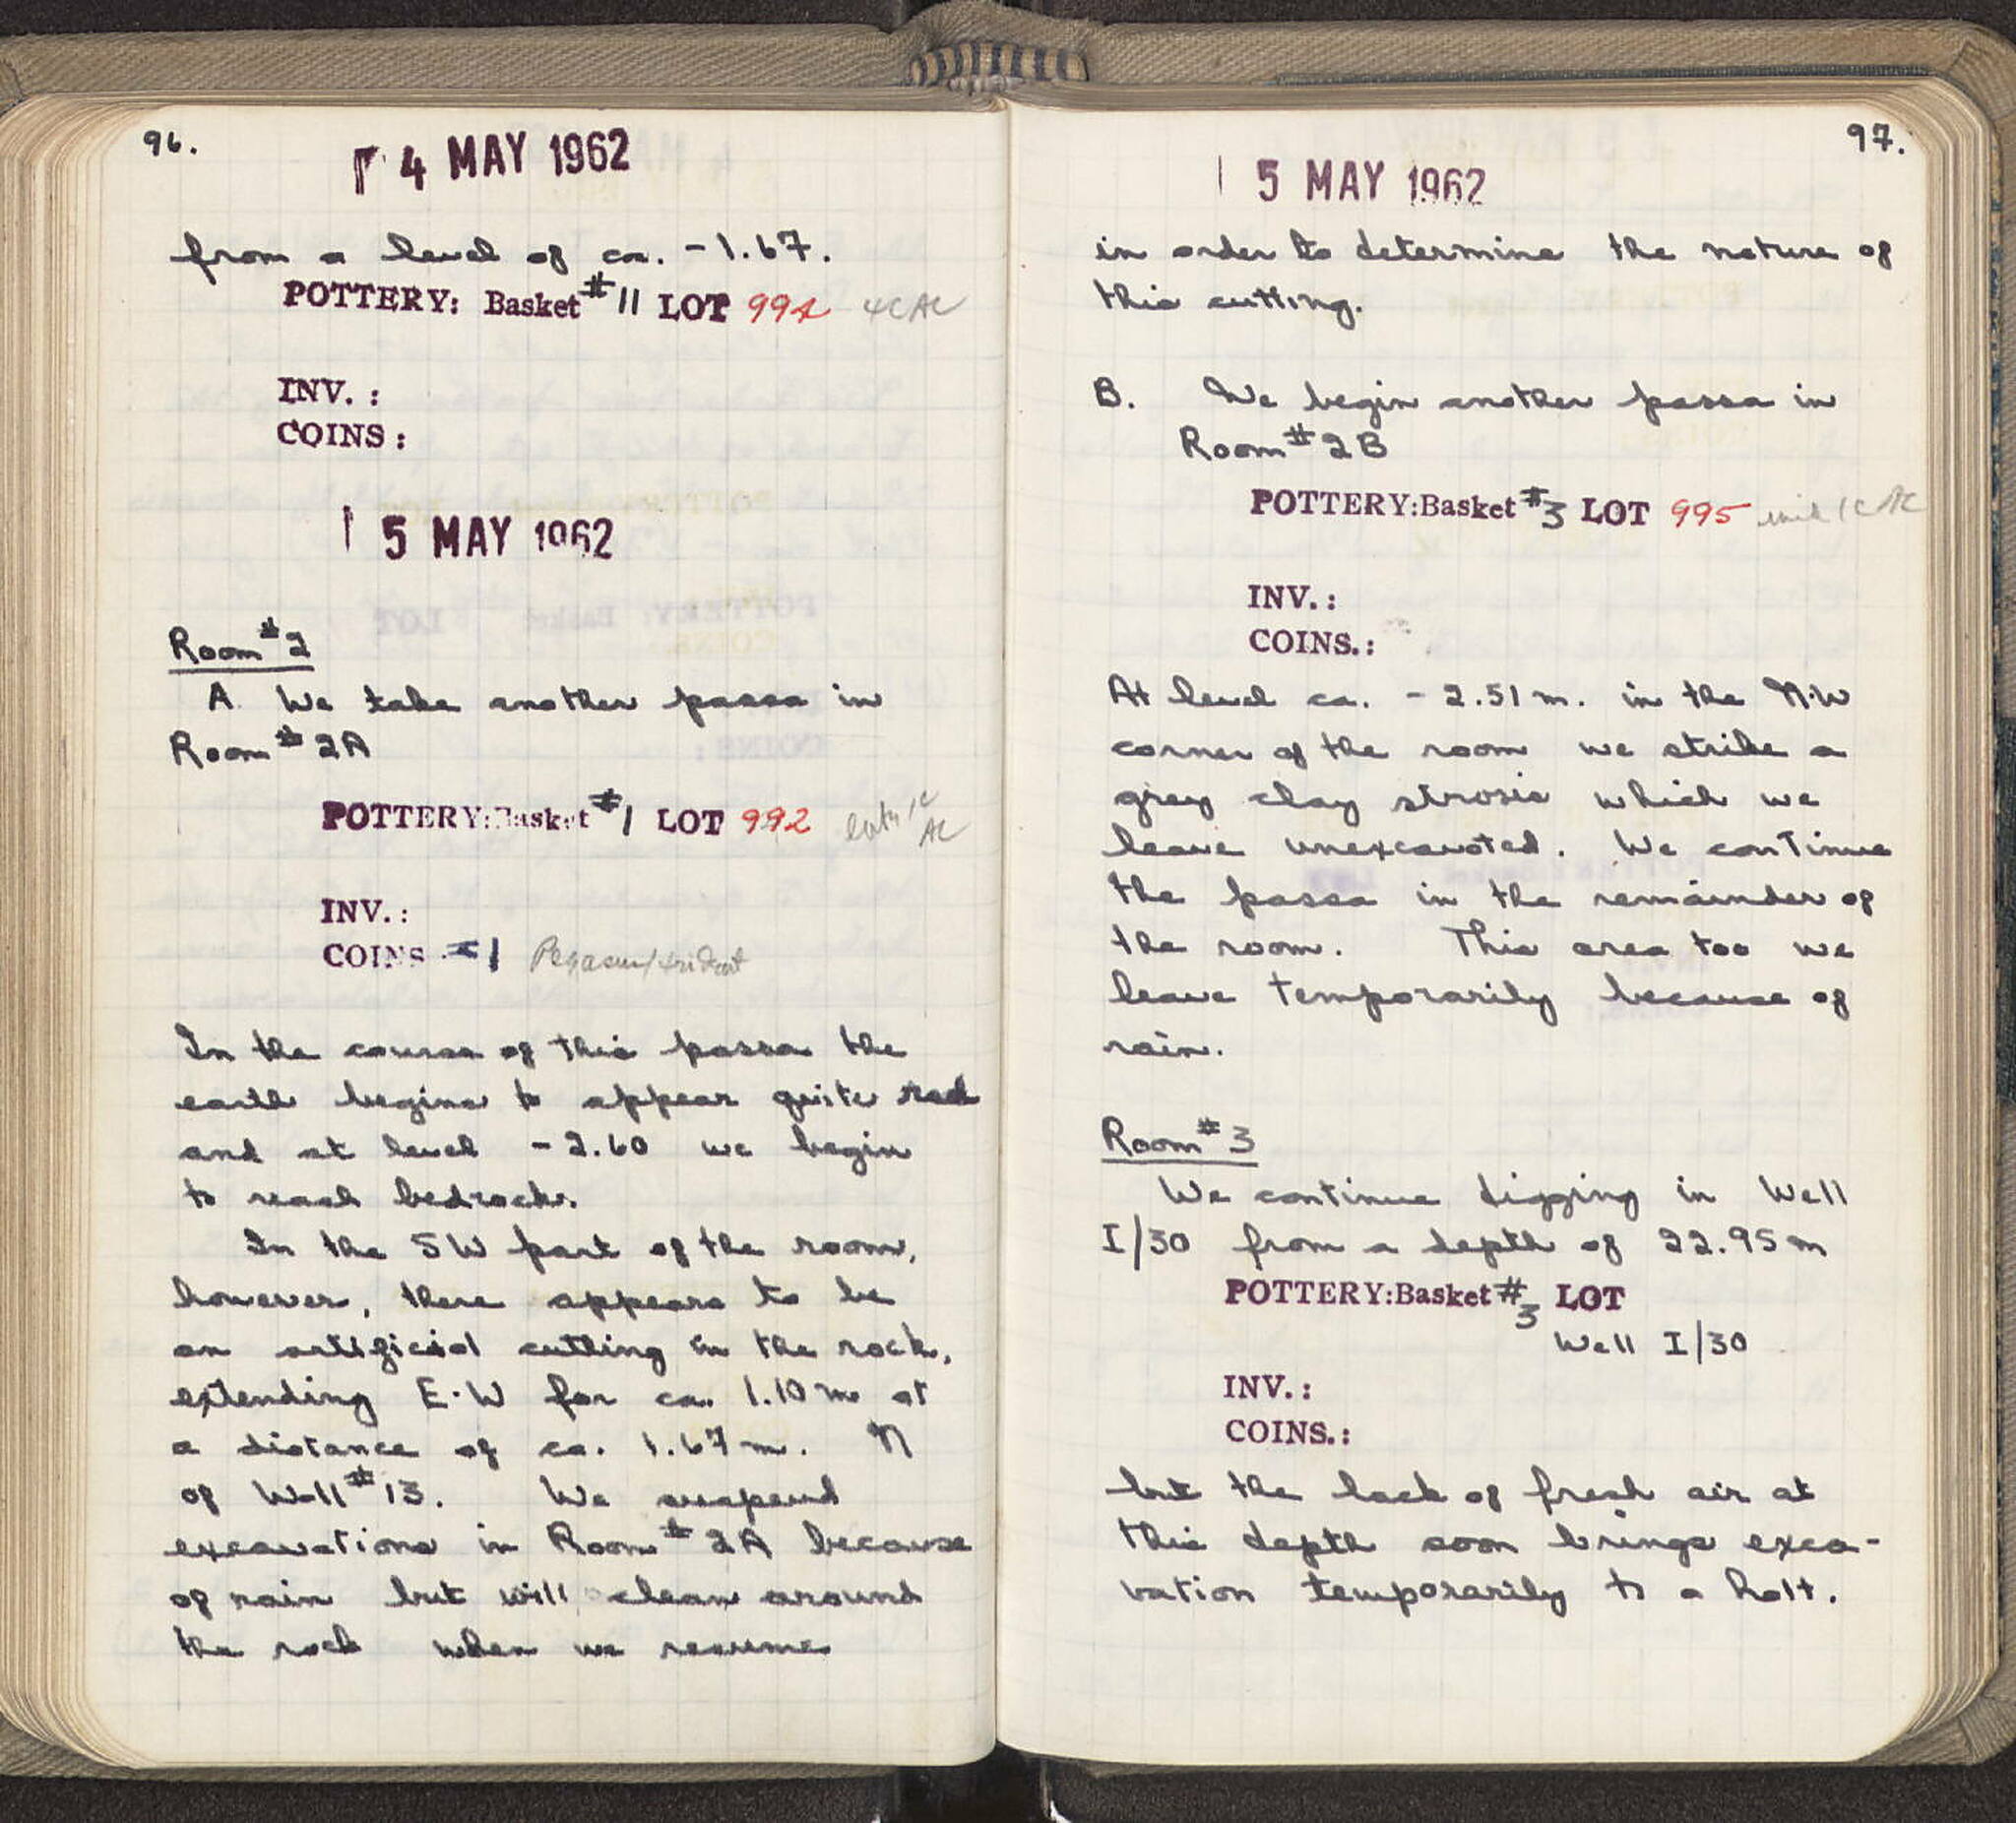 96.
4 MAY 1962
from a level of ca. -1.67.
POTTERY: Basket #11 LOT 994 4C AC
INV.:
COINS:
5 MAY 1962
Room #2
A. We take another passa in
Room #2A
POTTERY: Basket #1 LOT 992 late 1C
AC
INV.:
COINS #1 Pegasus/trident
In the course of this passa the
earth begins to appear quite red
and at level -2.60 we begin
to reach bedrock.
In the SW part of the room,
however, there appears to be
an artificial cutting in the rock,
extending E-W for ca. 1.10 m at
a distance of ca. 1.67 m. N
of Well #13. We suspend
excavations in Room #2A because
of rain but will clean around
the rock when we resume
97.
5 MAY 1962
in order to determine the nature of
this cutting.
B. We begin another passa in
Room #2B
POTTERY: Basket #3 LOT 995 mid 1C AC
INV.:
COINS.:
At level ca. -2.51 m. in the NW
corner of the room we strike a
grey clay strosis which we
leave unexcavated. We continue
the passa in the remainder of
the room. This area too we
leave temporarily because of
rain.
Room #3
We continue digging in Well
I/30 from a depth of 22.95 m
POTTERY: Basket #3 LOT
Well I/30
INV.:
COINS.:
but the lack of fresh air at
this depth soon brings exca-
vation temporarily to a halt.